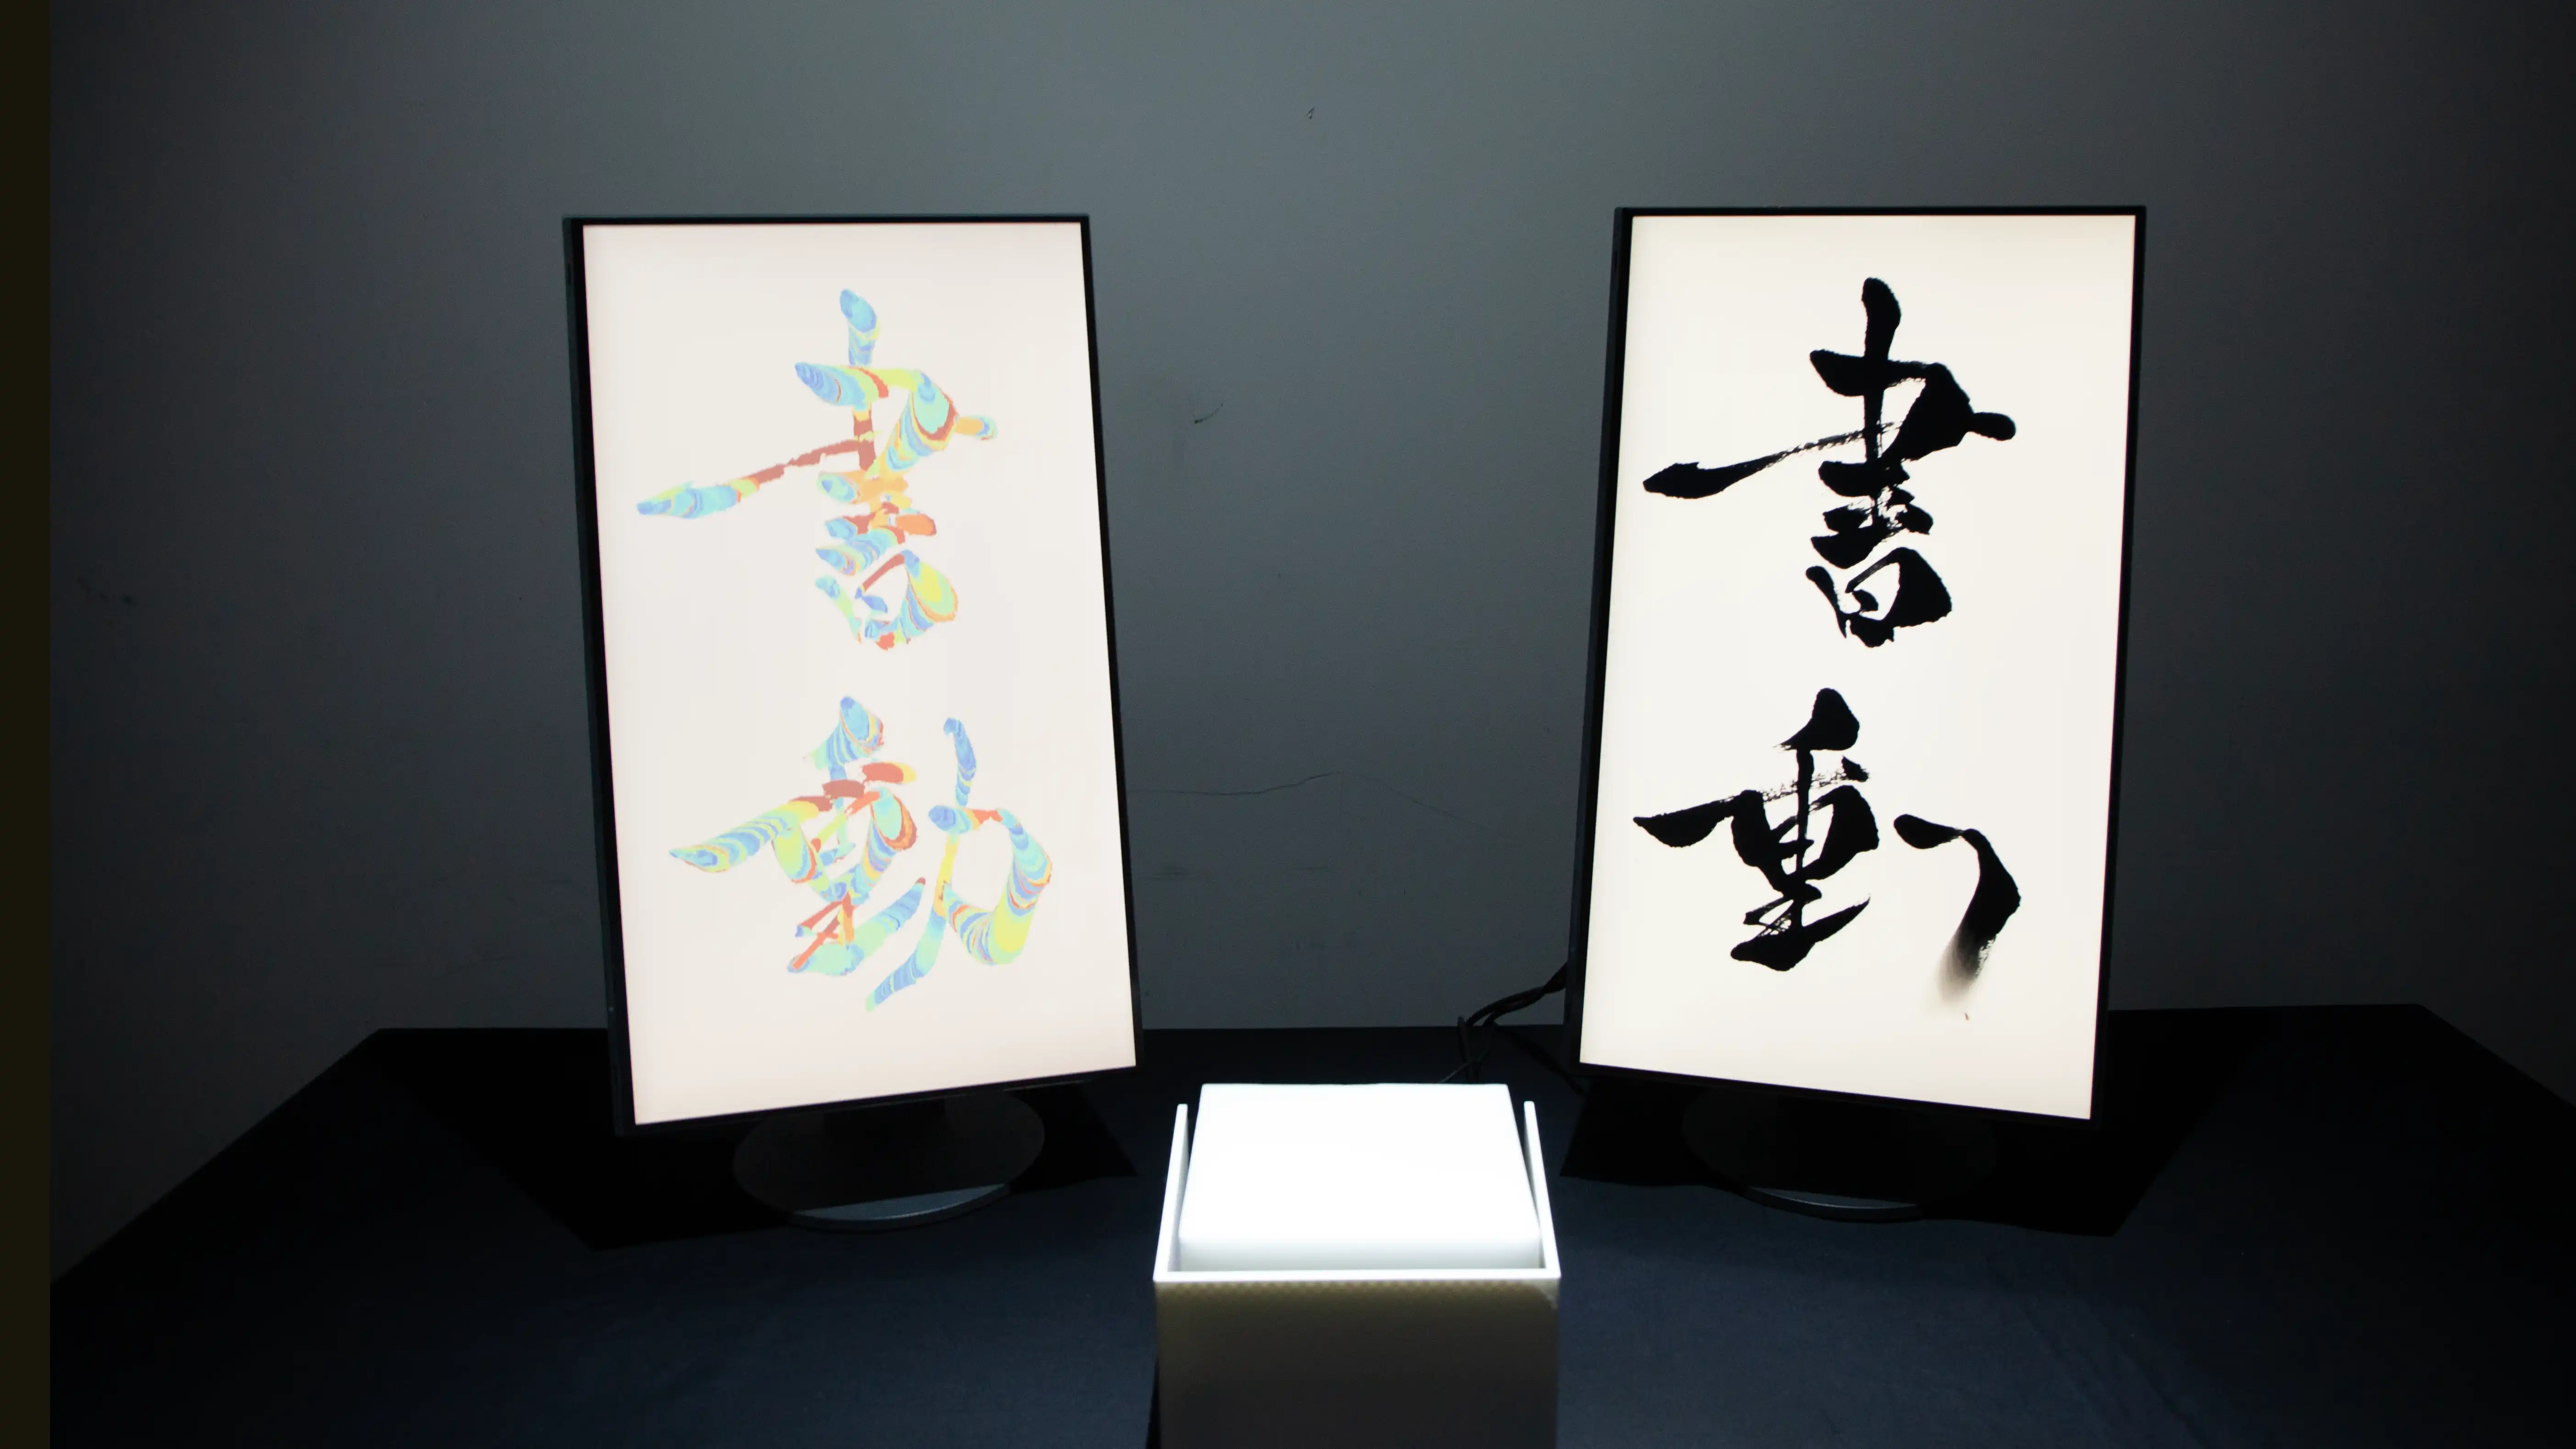 書動
書動